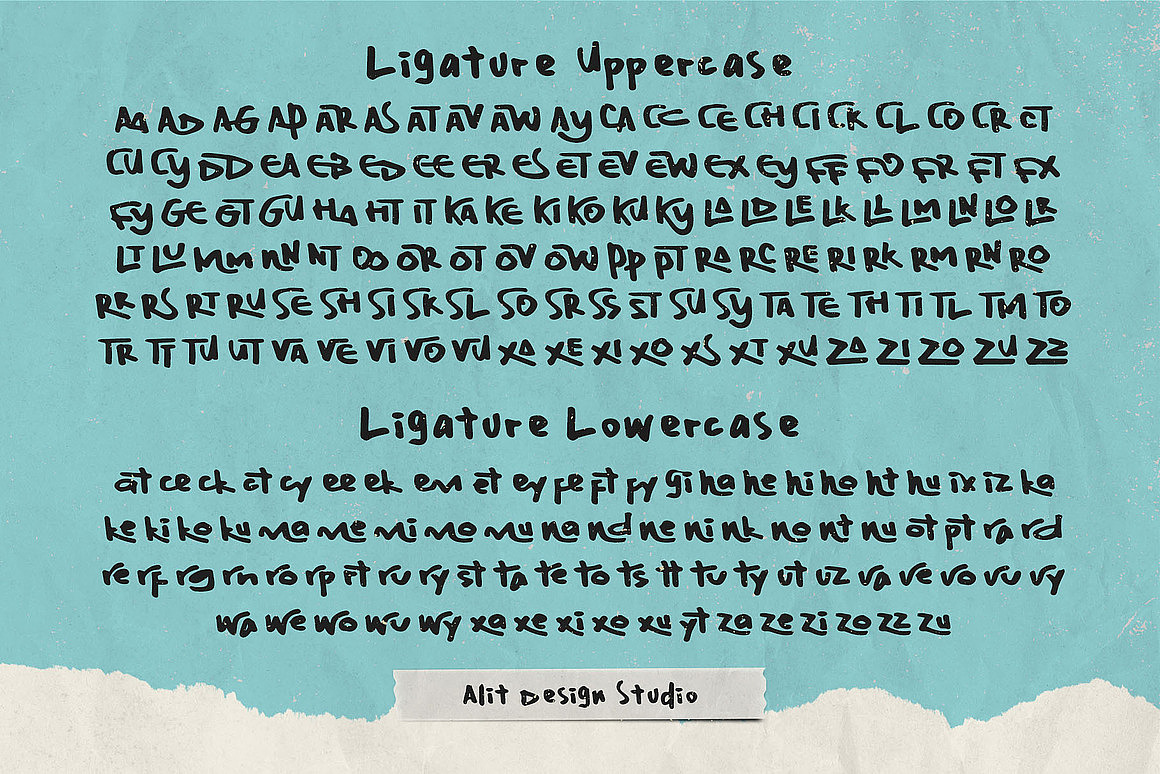 Ligature Uppercase
AA AD AG AP AR AS AT AV AW Ay CA CC CE CH CI CK CL CO CR CT
CU Cy DD EA EB ED EE ER ES ET EV EW EX Ey FF FO FR FT FX
Fy GE GT GU HA HT IT KA KE KI KO KU Ky LA LD LE LK LL LM LN LO LR
LT LU Mm nN NT OO OR OT OV OW Pp PT RA RC RE RI RK RM RN RO
RR RS RT RU SE SH SI SK SL SO SR SS ST SU Sy TA TE TH TI TL TM TO
TR TT TU UT VA VE VI VO VU XA XE XI XO XS XT XU ZA ZI ZO ZU ZZ
Ligature Lowercase
at ce ck ct cy ee ek em et ey fe ft fy gi ha he hi ho ht hu ix iz ka
ke ki ko ku ma me mi mo mu na nd ne ni nk no nt nu ot pt ra rd
re rf rg rn ro rp rt ru ry st ta te to ts tt tu ty ut uz va ve vo vu vy
wa we wo wu wy xa xe xi xo xu yt za ze zi zo zz zu
Alit Design Studio